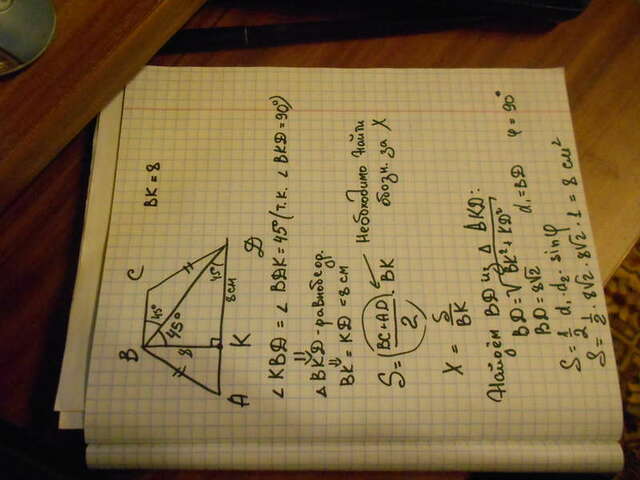 BK = 8
B
C
45°
45°
8
45°
8 см
A
K
D
∠KBD = ∠BDK = 45° (т.к. ∠BKD = 90°)
⇓
△BKD - равнобедр.
⇓
BK = KD = 8 см
S = (BC + AD)/2 · BK
Необходимо найти
обозн. за X
X = S/BK
Найдём BD из △BKD:
BD = √BK² + KD²
BD = 8√2
d₁ = BD
φ = 90°
S = 1/2 d₁ · d₂ · sin φ
S = 1/2 · 8√2 · 8√2 · 1 = 8 см²